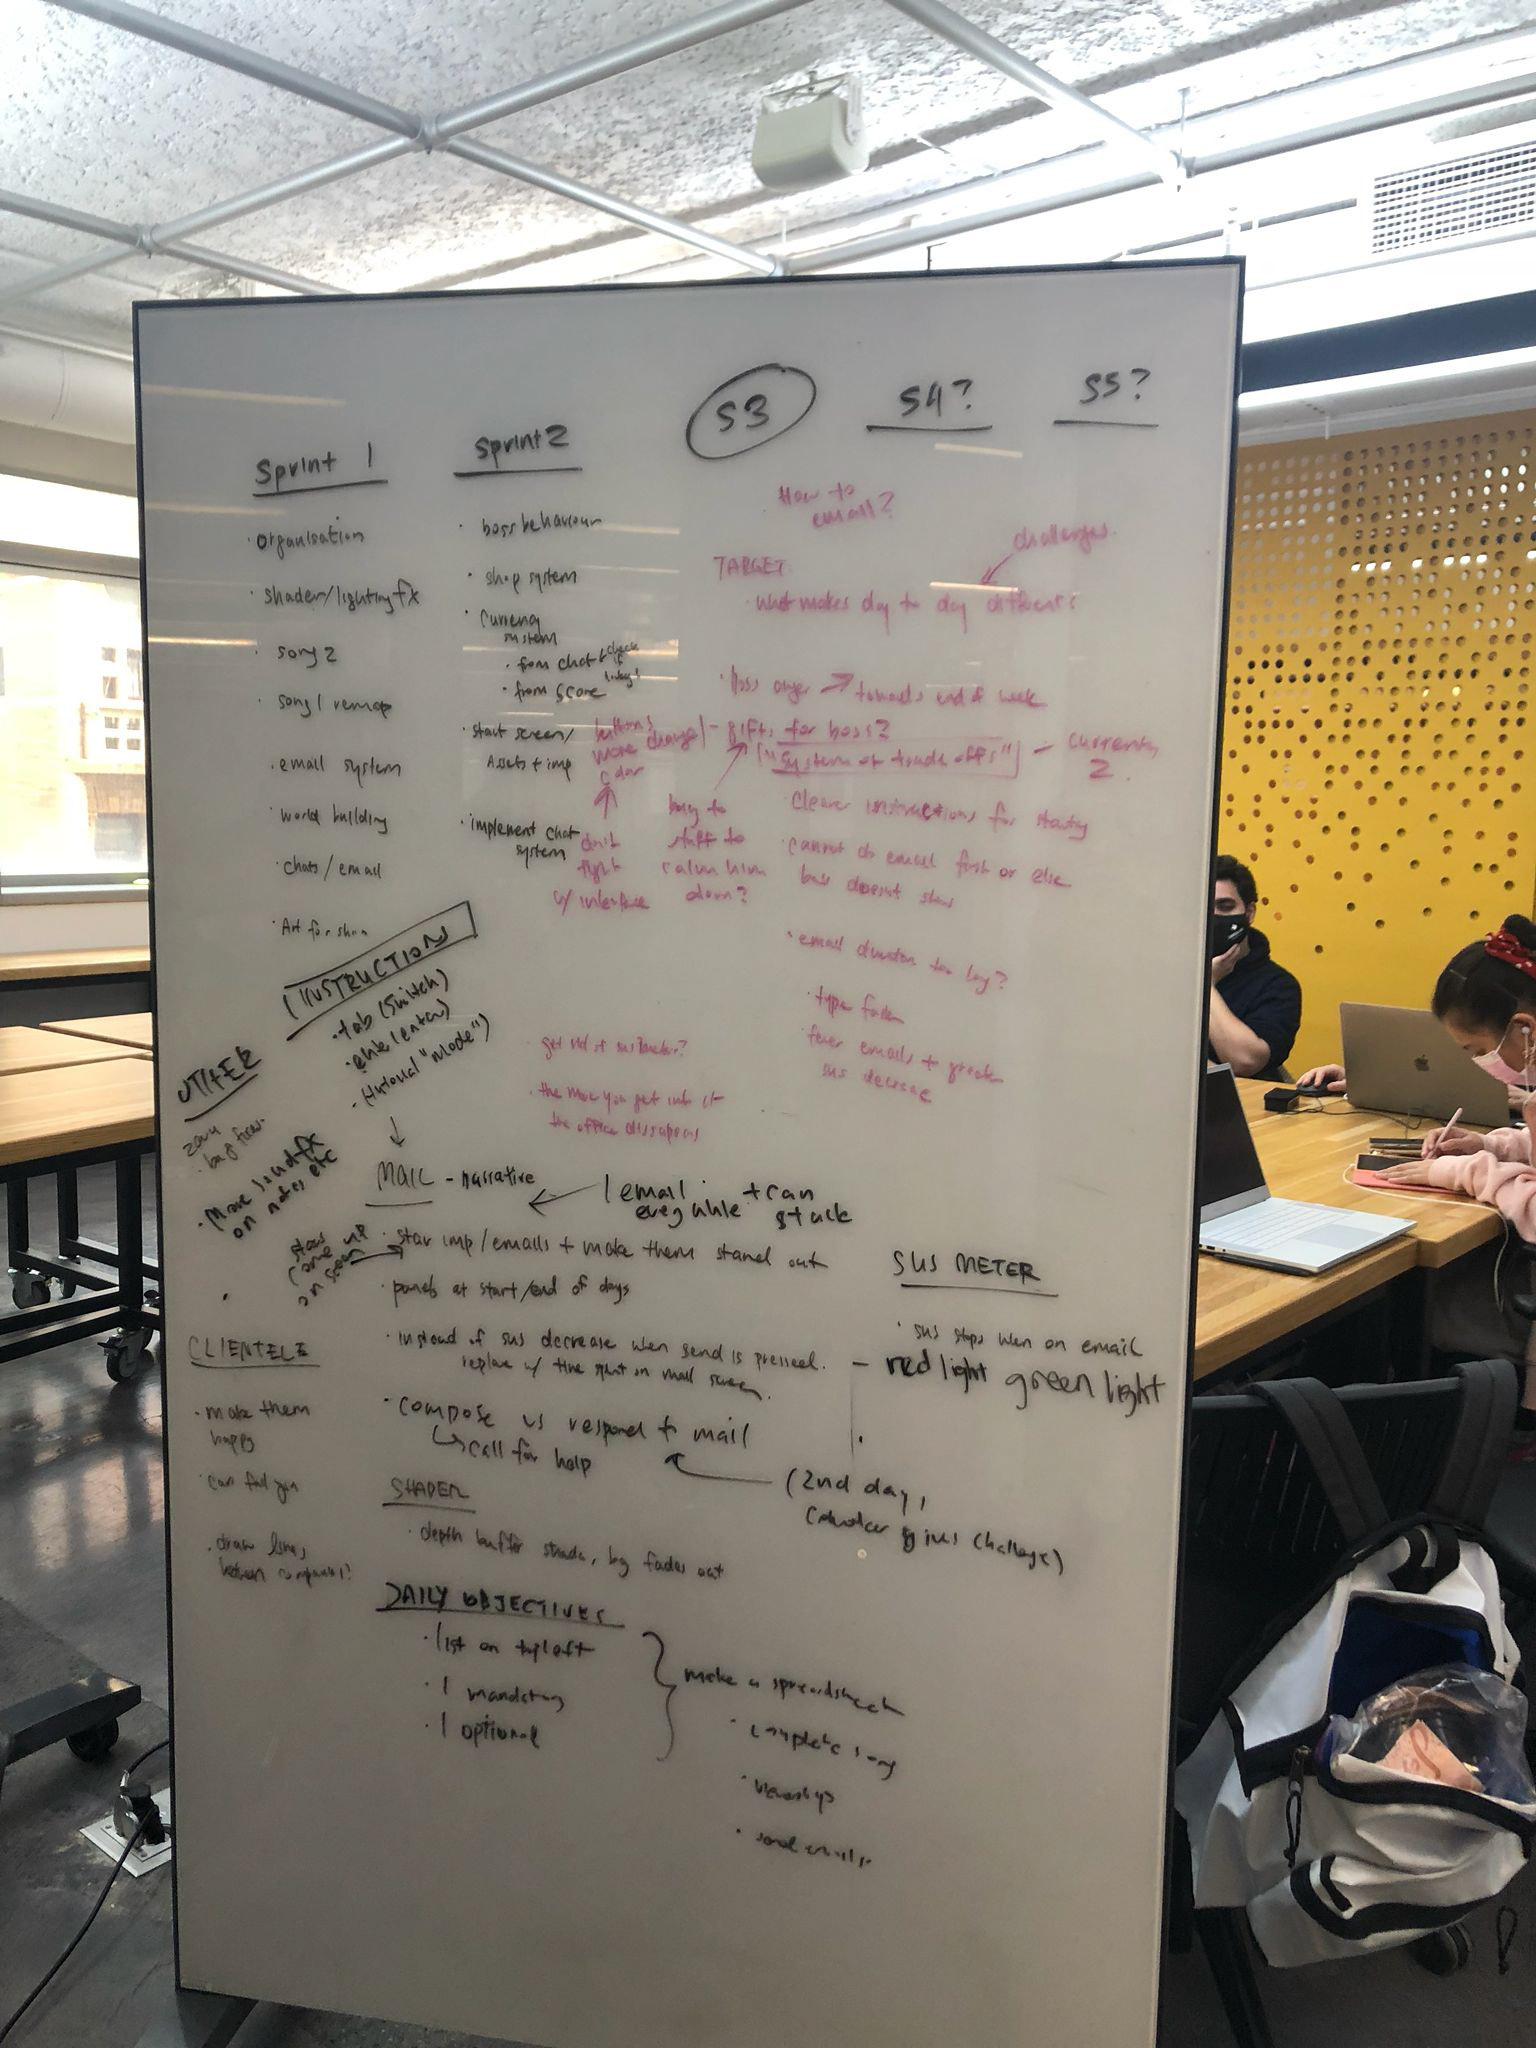 Sprint 1
· organisation
· shader/lighting fx
· song 2
· song 1 remap
· email system
· world building
· chats/email
· Art for
Sprint 2
· boss behaviour
· shop system
· currency
system
· from chat
· from score
start screen/
Assets + imp
· implement chat
system
S3
S4?
S5?
How to
email?
challenges
TARGET
· what makes day to day different?
· boss anger towards end of week
- gifts for boss?
["System of trade offs"] - currency
2.
buttons
more change
color
don't
fight
w/ interface
buy
stuff to
calm him
down?
· clearer instructions for
· cannot do email first or else
boss doesn't
· email duration too long?
· type faster
· fewer emails + greater
sus decrease
· get rid of
· the more you get into it
the office
INSTRUCTIONS
· tab (switch)
· (enter)
· "mode")
OTHER
· bug fixes
· More sound fx
on notes etc
MAIL - narrative
1 email
+ can
stack
· star imp/emails + make them stand out
stars
come up
on screen
· panels at start/end of days
· instead of sus decrease when send is pressed.
replace w/ time spent on mail screen.
· compose vs respond to mail
call for help
(2nd day,
gives challenge)
SUS METER
· sus stops when on email
- red light green light
CLIENTELE
· make them
happy
· can
· draw lines
between companies?
SHADER
· depth buffer shader, bg fades out
DAILY OBJECTIVES
· list on top left
· 1 mandatory
· 1 optional
make a spreadsheet
· complete song
· send emails